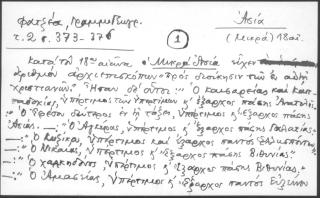 Φατζέα, Γραμματικ.
τ. 2 σ. 373-376
1
Ἀσία
(Μικρά) 18 αἰ.
Κατὰ τὸν 18ον αἰῶνα ἡ Μικρὰ Ἀσία εἶχε
ἀριθμὸν ἀρχιεπισκόπων "πρὸς διοίκησιν τῶν ἐν αὐτῇ
χριστιανῶν." Ἦσαν δὲ οὗτοι: "Ὁ Καισαρείας καὶ Καπ-
παδοκίας, ὑπέρτιμος τῶν ὑπερτίμων κ' ἔξαρχος πάσης Ἀνατολῆς
Ὁ Ἐφέσου δεύτερος ἐν τῇ τάξει, ὑπέρτιμος κ' ἔξαρχος πάσης
Ἀσίας. —: Ὁ Ἀγκύρας, ὑπέρτιμος κ' ἔξαρχος πάσης Γαλατίας.
—: Ὁ Κυζίκου, ὑπέρτιμος καὶ ἔξαρχος παντὸς Ἑλλησπόντου
—: Ὁ Νικαίας, ὑπέρτιμος κ' ἔξαρχος πάσης Βιθυνίας.
—: Ὁ Χαλκηδόνος, ὑπέρτιμος κ' ἔξαρχος πάσης Βιθυνίας.
—: Ὁ Ἀμασείας, ὑπέρτιμος κ' ἔξαρχος παντὸς Εὐξείνου